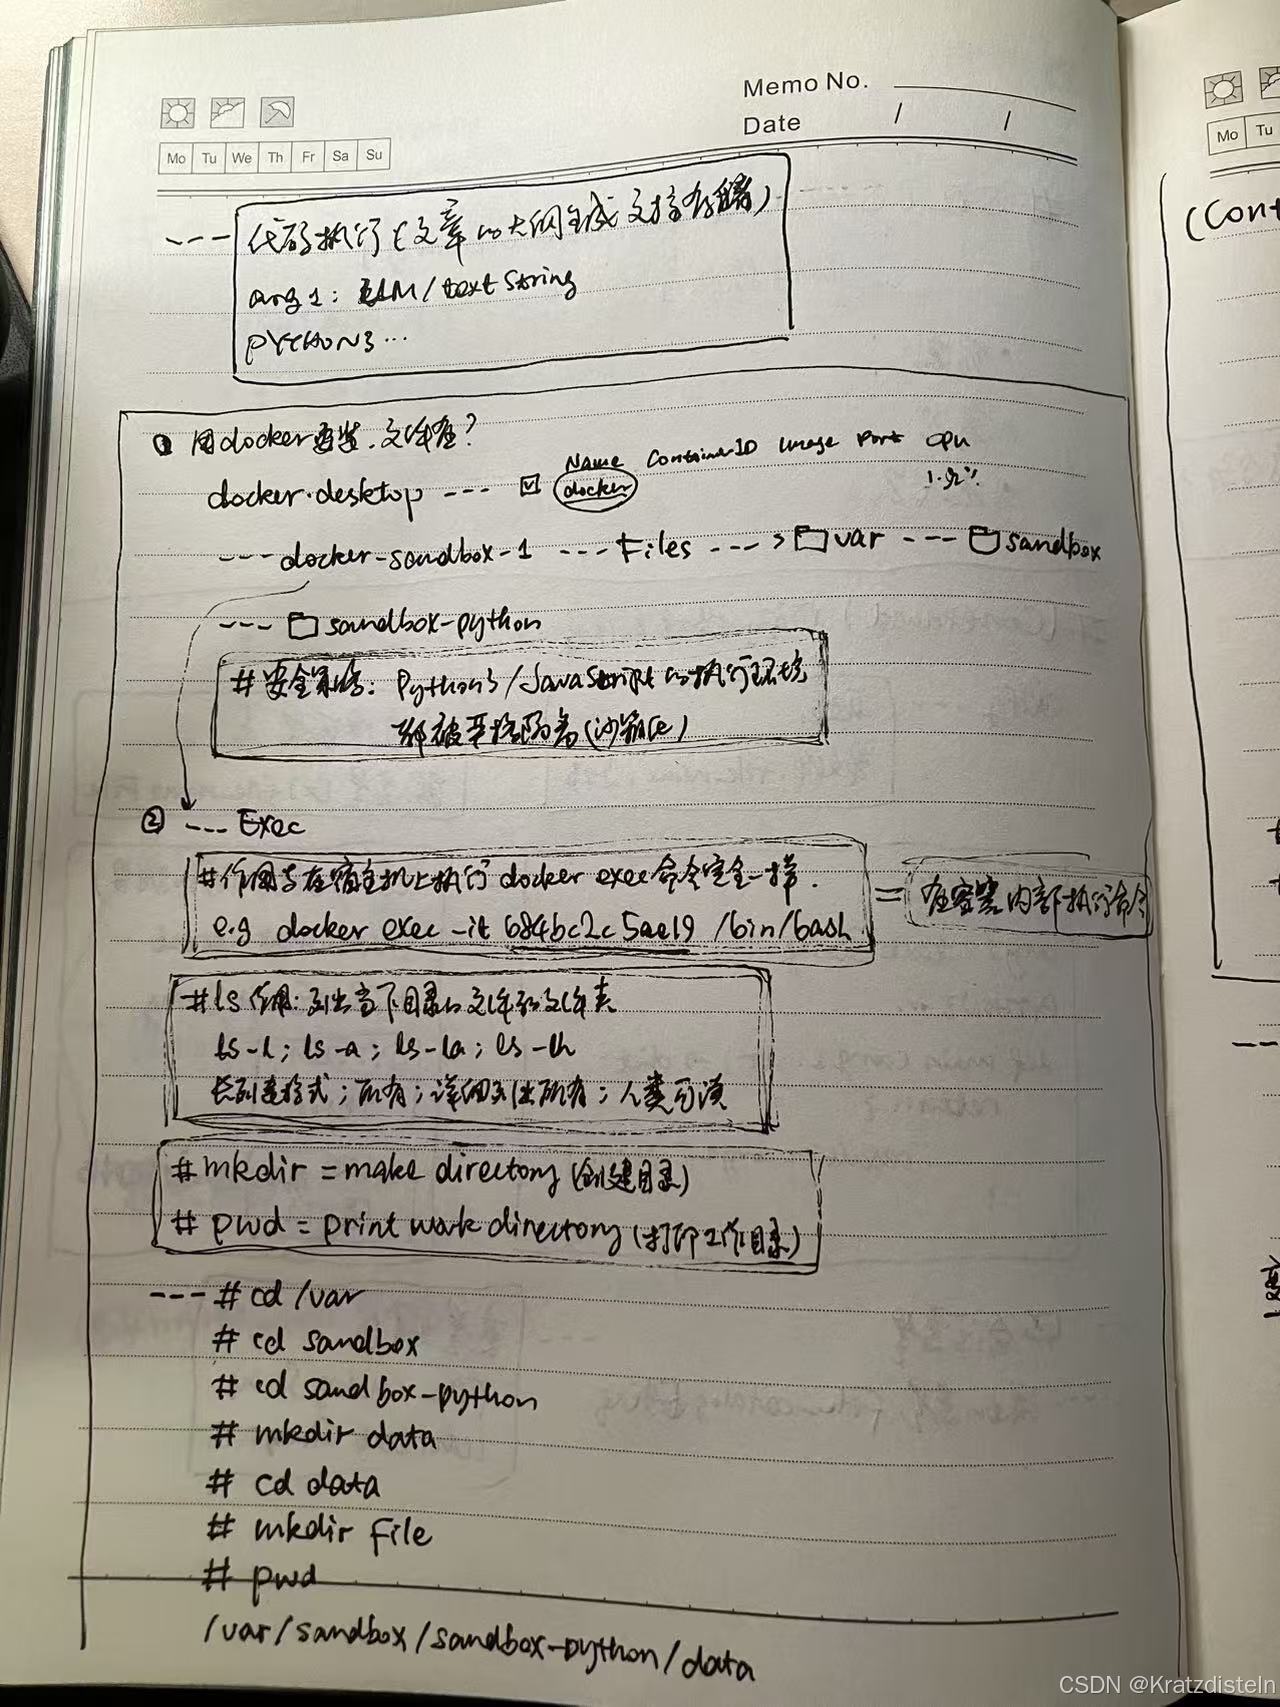 Memo No.
Date / /
Mo Tu We Th Fr Sa Su
Mo Tu
--- 代码执行(文章的大纲生成 文档存储)
arg1: LLM/text String
PYTHON3...
(Cont
① 用docker 文件在?
Name ContainerID Image Port CPU
docker.desktop --- ☑ docker
--- docker-sandbox-1 --- Files ---> var --- sandbox
--- sandbox-python
#安全策略: Python3/JavaScript的执行环境
都被严格隔离(沙箱化)
② --- Exec
#作用与在宿主机上执行 docker exec命令完全一样.
= 在容器内部执行命令
e.g docker exec -it 684bc2c5ae19 /bin/bash
#ls 作用: 列出当下目录的文件和文件夹
ls-l; ls-a; ls-la; ls-lh
长列表格式; 所有; 详细列出所有; 人类可读
# mkdir = make directory (创建目录)
# pwd = print work directory (打印工作目录)
--- # cd /var
# cd sandbox
# cd sandbox-python
# mkdir data
# cd data
# mkdir File
# pwd
/var/sandbox/sandbox-python/data
CSDN @Kratzdisteln